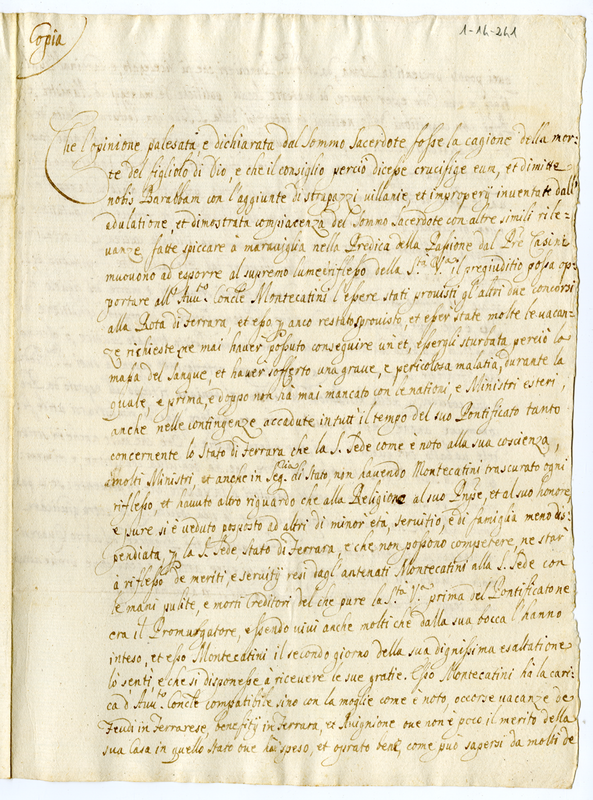 Copia
1-14-241
Che l'opinione palesata, e dichiarata dal Sommo Sacerdote fosse la cagione della mor=
te del figliolo di Dio, e che il consiglio perciò dicesse crucifige eum, et dimitte
nobis Barabbam con l'aggiunte di strapazzi villanie, et improperij inventate dall'
adulatione, et dimostrata compiacenza del Sommo Sacerdote con altre simili rile=
vanze fatte spiccare à maraviglia nella Predica della Passione dal Pre Casini
muovono ad esporre al supremo lume riflesso della Sta Va il pregiuditio possa op=
portare all' Avvto Concle Montecatini l'essere stati provisti gl'altri due concorsi
alla Rota di Ferrara, et esso anco restato sprovisto, et esser state molte le vacan=
ze richieste ne mai haver possuto conseguire un et, essergli sturbata perciò la
massa del sangue, et haver sofferto una grave, e pericolosa malatia, durante la
quale, e prima, e doppo non ha mai mancato con le nationi, e Ministri esteri,
anche nelle contingenze accadute in tutt' il tempo del suo Pontificato tanto
concernente lo Stato di Ferrara che la S. Sede come è noto alla sua coscienza,
à molti Ministri, et anche in Segria di Stato non havendo Montecatini trascurato ogni
riflesso, et havuto altro riguardo che alla Religione al suo Pnpe, et al suo honore
e pure si è veduto posposto ad altri di minor età, servitio, e di famiglia meno dis=
pendiata, la S. Sede Stato di Ferrara, e che non possono competere, ne star
à riflesso de meriti, e servitij resi dagl'antenati Montecatini alla S. Sede con
le mani pulite, e morti Creditori del che pure la Sta Va prima del Pontificato ne
era il Promulgatore, essendo vivi anche molti che dalla sua bocca l'hanno
inteso, et esso Montecatini il secondo giorno della sua dignissima esaltatione
lo sentì, e che si disponesse à ricevere le sue gratie. Esso Montecatini hà la cari=
ca d'Avvto Concle compatibile sino con la moglie come è noto, occorse vacanze de
Feudi in Ferrarese, benefitij in Ferrara, et Avignione ove non è poco il merito della
sua Casa in quello Stato ove hà speso, et oprato bene, come può sapersi da molti de